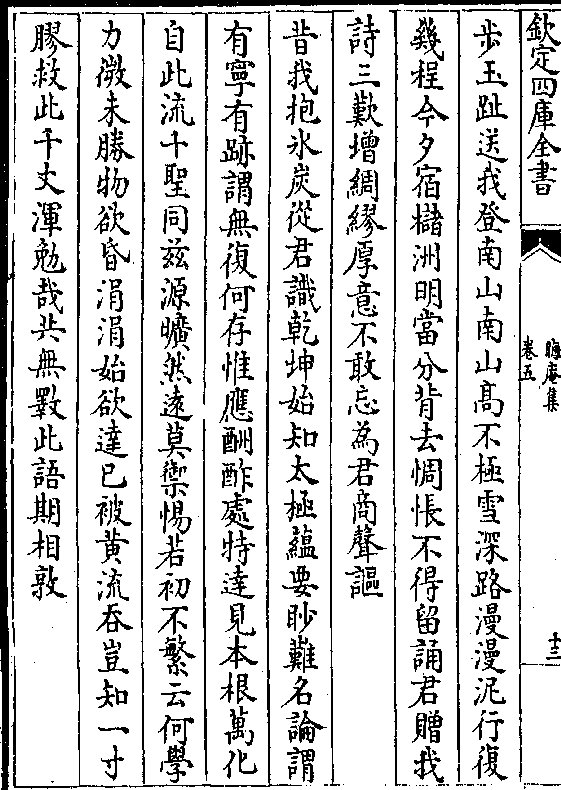 欽定四庫全書
晦庵集
卷五
十三
歩玉趾送我登南山南山髙不極雪深路漫漫泥行復
幾程今夕宿櫧洲明當分背去惆悵不得留誦君贈我
詩三歎増綢繆厚意不敢忘為君商聲謳
昔我抱氷炭從君識乾坤始知太極藴要眇難名論謂
有寧有跡謂無復何存惟應酬酢處特達見本根萬化
自此流千聖同兹源曠然逺莫禦惕若初不繁云何學
力微未勝物欲昏涓涓始欲達已被黄流吞豈知一寸
膠救此千丈渾勉哉共無斁此語期相敦